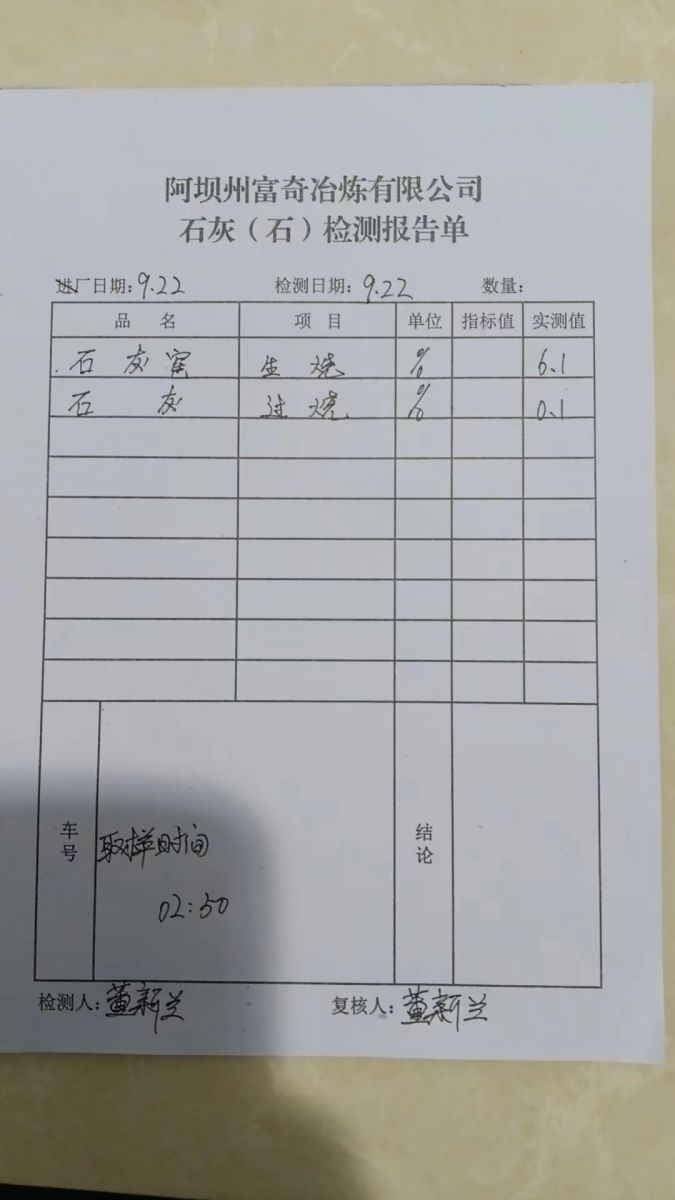 阿坝州富奇冶炼有限公司
石灰（石）检测报告单
进厂日期：9.22 检测日期：9.22 数量：
品名 项目 单位 指标值 实测值
石灰窑 生烧 % 6.1
石灰 过烧 % 0.1
车号 取样时间 结论
02:50
检测人：董新兰 复核人：董新兰